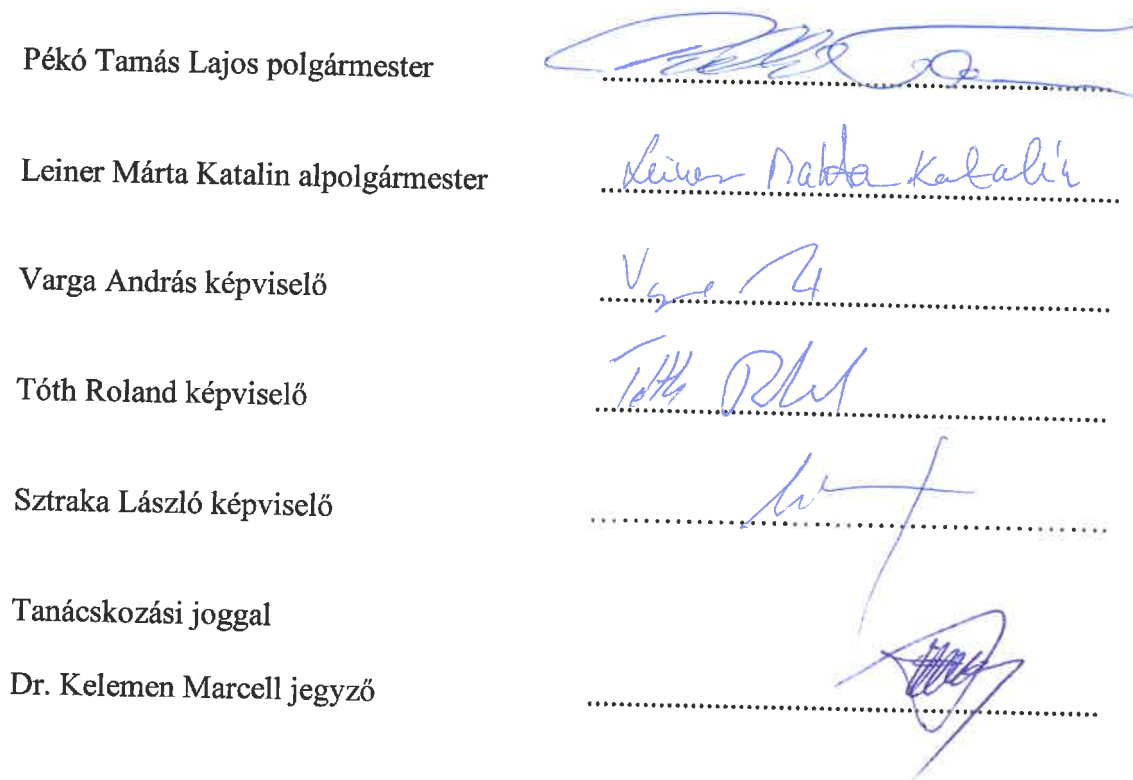 Pékó Tamás Lajos polgármester
Leiner Márta Katalin alpolgármester Leiner Márta Katalin
Varga András képviselő
Tóth Roland képviselő Tóth
Sztraka László képviselő
Tanácskozási joggal
Dr. Kelemen Marcell jegyző